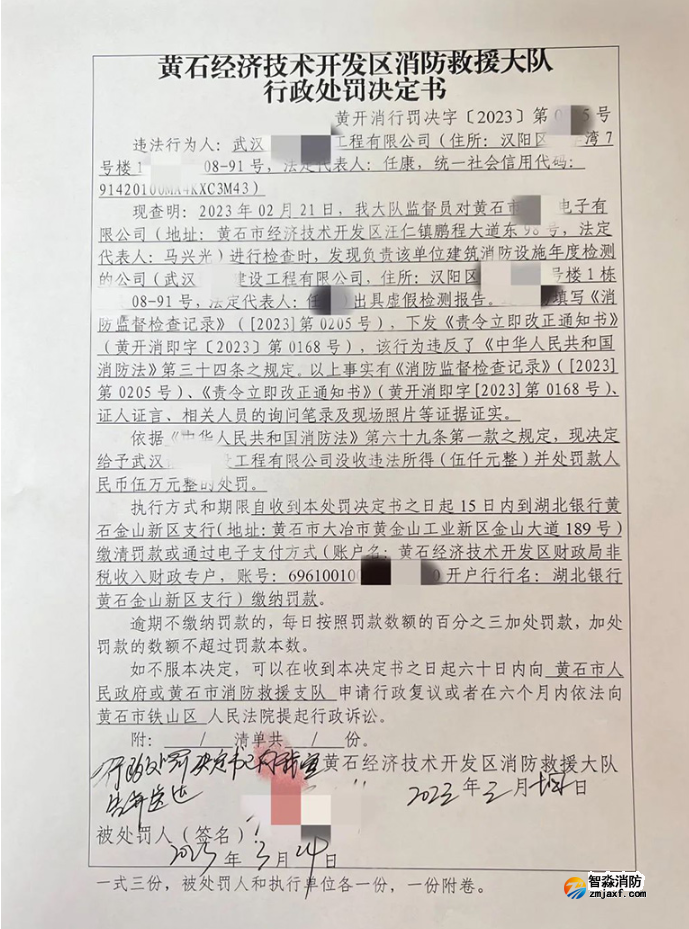 黄石经济技术开发区消防救援大队
行政处罚决定书
黄开消行罚决字〔2023〕第0 5号
违法行为人：武汉 工程有限公司（住所：汉阳区 湾7
号楼1 08-91号，法定代表人：任康，统一社会信用代码：
91420100MA4KXC3M43）
现查明：2023年02月21日，我大队监督员对黄石市 电子有
限公司（地址：黄石市经济技术开发区汪仁镇鹏程大道东98号，法定
代表人：马兴光）进行检查时，发现负责该单位建筑消防设施年度检测
的公司（武汉 建设工程有限公司，住所：汉阳区 号楼1栋
08-91号，法定代表人：任 出具虚假检测报告。 填写《消
防监督检查记录》（[2023]第0205号），下发《责令立即改正通知书》
（黄开消即字〔2023〕第0168号），该行为违反了《中华人民共和国
消防法》第三十四条之规定。以上事实有《消防监督检查记录》（[2023]
第0205号）、《责令立即改正通知书》（黄开消即字[2023]第0168号）、
证人证言、相关人员的询问笔录及现场照片等证据证实。
依据《中华人民共和国消防法》第六十九条第一款之规定，现决定
给予武汉 设工程有限公司没收违法所得（伍仟元整）并处罚款人
民币伍万元整的处罚。
执行方式和期限自收到本处罚决定书之日起15日内到湖北银行黄
石金山新区支行（地址：黄石市大冶市黄金山工业新区金山大道189号）
缴清罚款或通过电子支付方式（账户名：黄石经济技术开发区财政局非
税收入财政专户，账号：69610010 0开户行行名：湖北银行
黄石金山新区支行）缴纳罚款。
逾期不缴纳罚款的，每日按照罚款数额的百分之三加处罚款，加处
罚款的数额不超过罚款本数。
如不服本决定，可以在收到本决定书之日起六十日内向 黄石市人
民政府或黄石市消防救援支队 申请行政复议或者在六个月内依法向
黄石市铁山区 人民法院提起行政诉讼。
附： / 清单共 / 份。
行政处罚决定书已向我宣 黄石经济技术开发区消防救援大队
告并送达 2023年3月 日
被处罚人（签名）：
2023年3月24日
一式三份，被处罚人和执行单位各一份，一份附卷。
智淼消防
zmjaxf.com